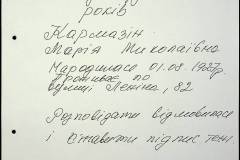 років
Кармазін
Марія Миколаївна
Народилася 01.08.1927р.
Проживає по
вулиці Леніна, 82
Розповідати відмовилася
і ставити підпис теж